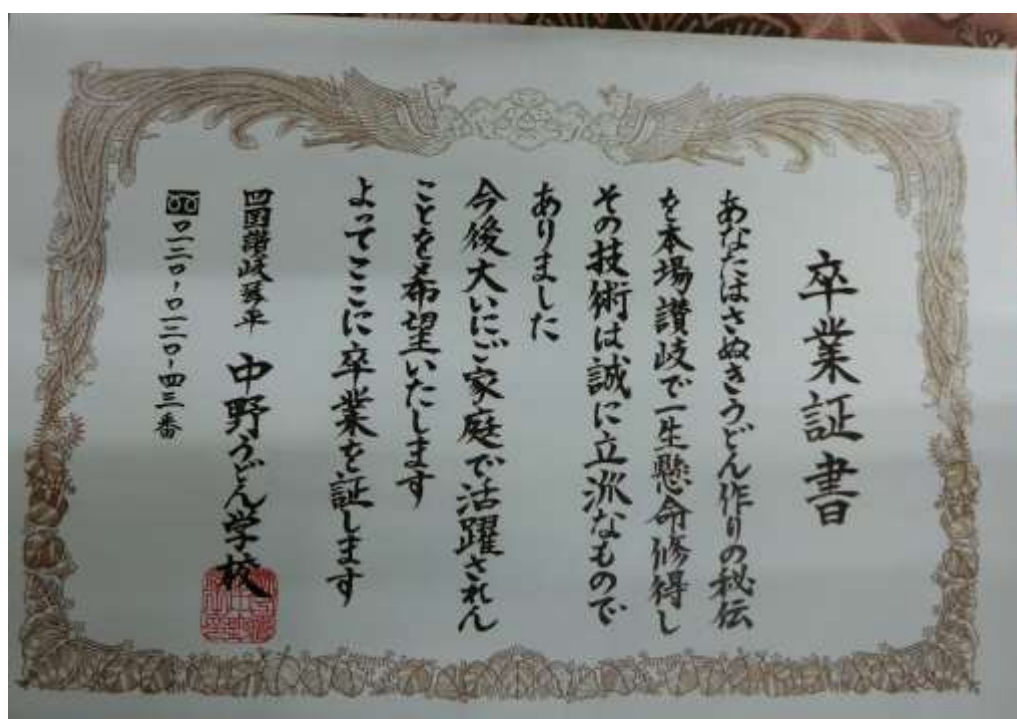 卒業証書
あなたはさぬきうどん作りの秘伝
を本場讃岐で一生懸命修得し
その技術は誠に立派なもので
ありました
今後大いにご家庭で活躍されん
ことを希望いたします
よってここに卒業を証します
四国讃岐琴平 中野うどん学校
〇一二〇-〇一二〇-四三番